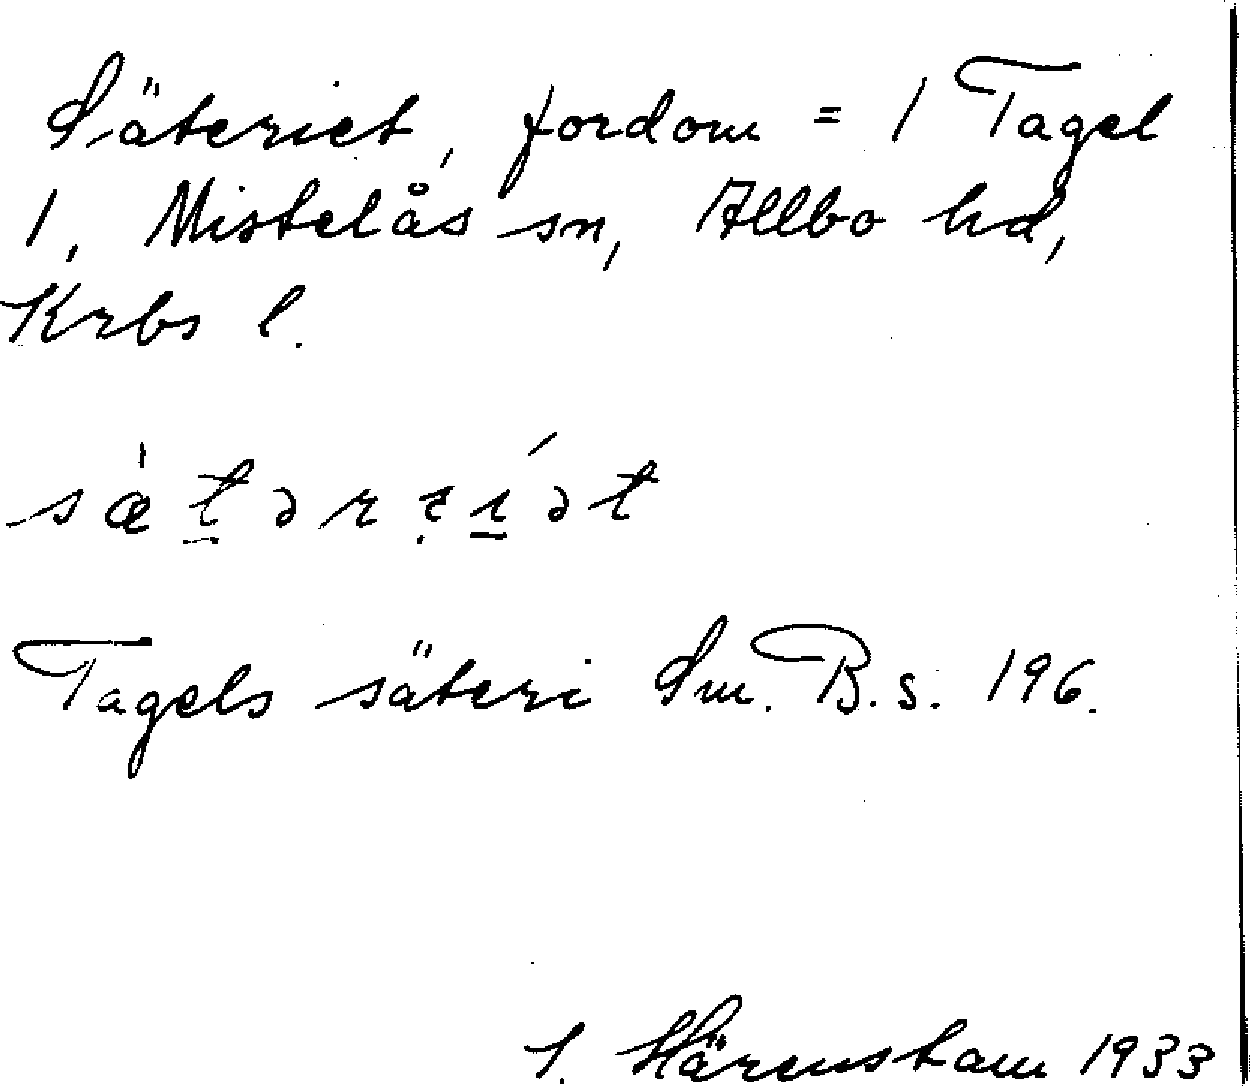 Säteriet, fordom = 1 Tagel
1, Mistelås sn, Allbo hd,
Krbs l.
Tagels säteri Sm. B. s. 196.
Härenstam 1933